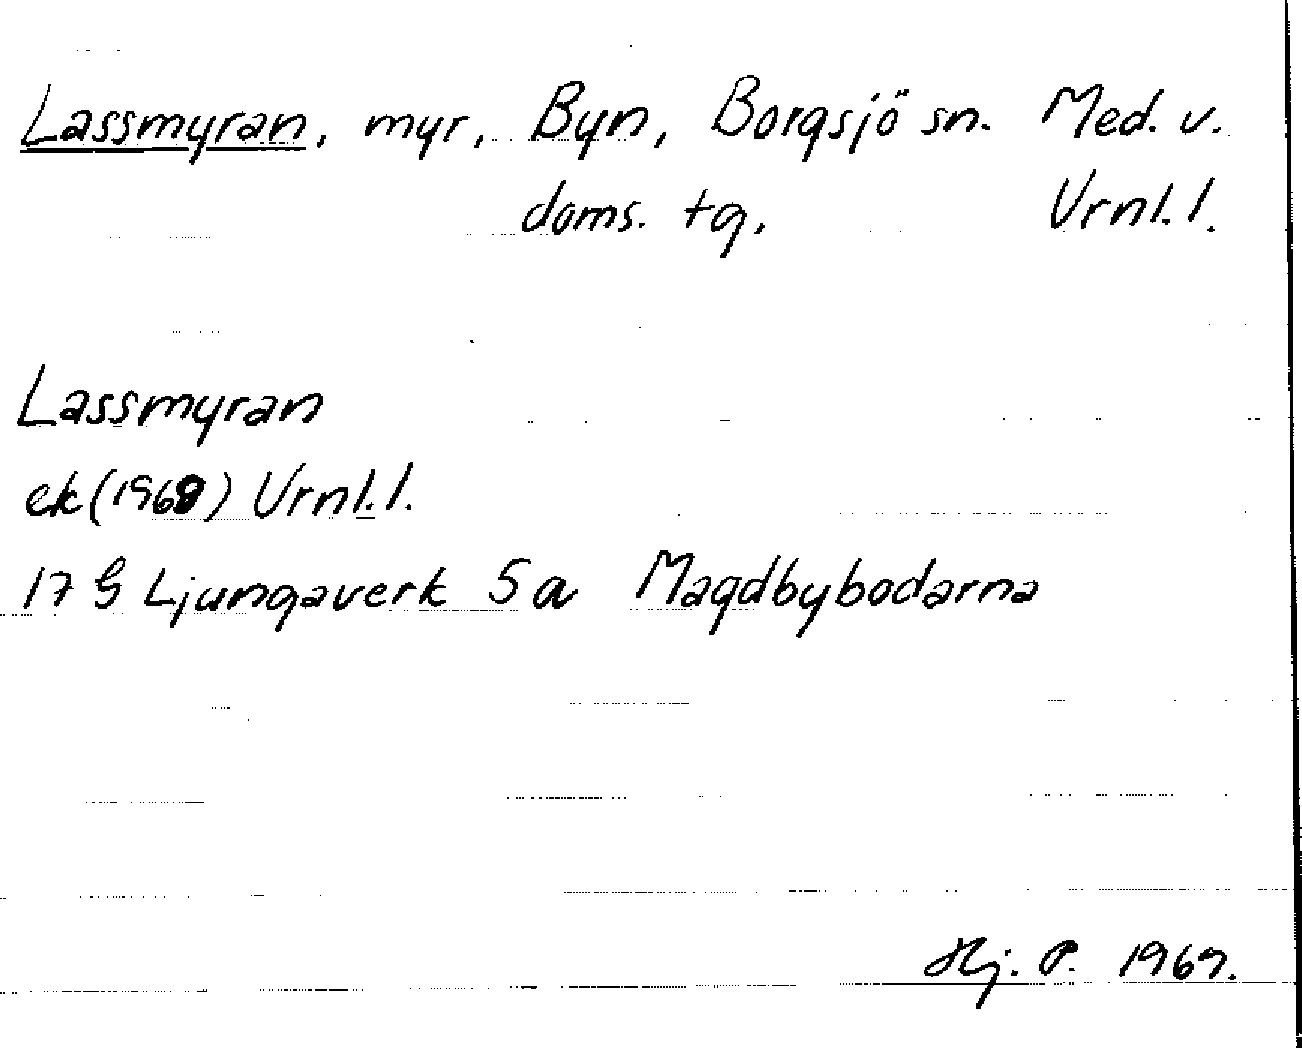 Lassmyran, myr, Byn, Borgsjö sn. Med. v.
doms. tg, Vrnl. l.
Lassmyran
ek (1968) Vrnl. l.
17 G Ljungaverk 5 a Magdbybodarna
Hj. P. 1967.